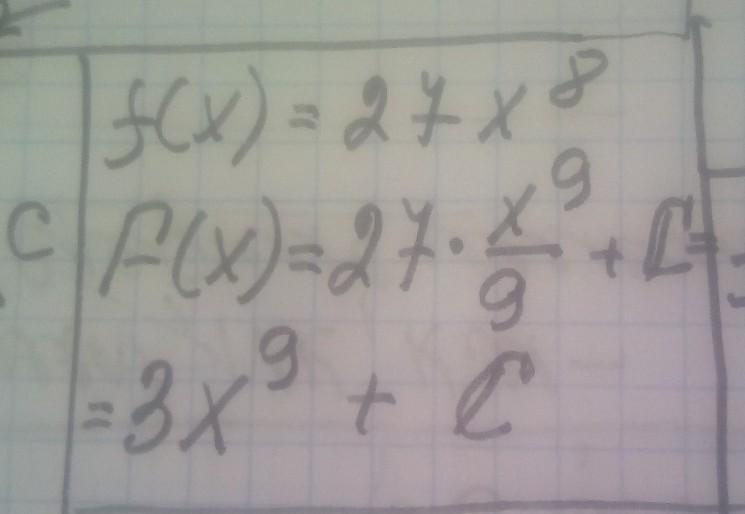 f(x) = 27x⁸
C F(x) = 27 · x⁹/9 + C =
= 3x⁹ + C